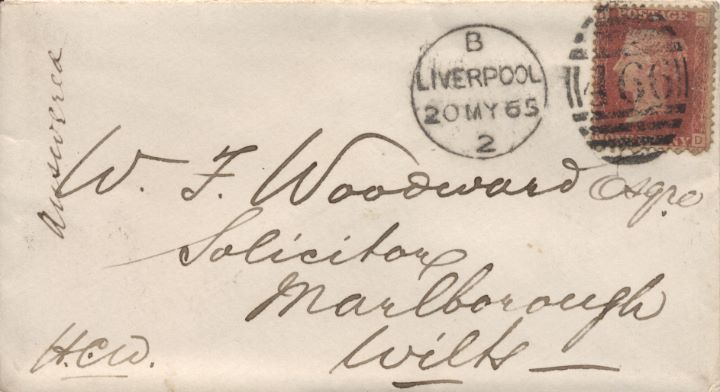 Answered
B
LIVERPOOL
20 MY 65
2
POSTAGE
466
D
W. F. Woodward Esqre
Solicitor
Marlborough
Wilts
H.C.W.